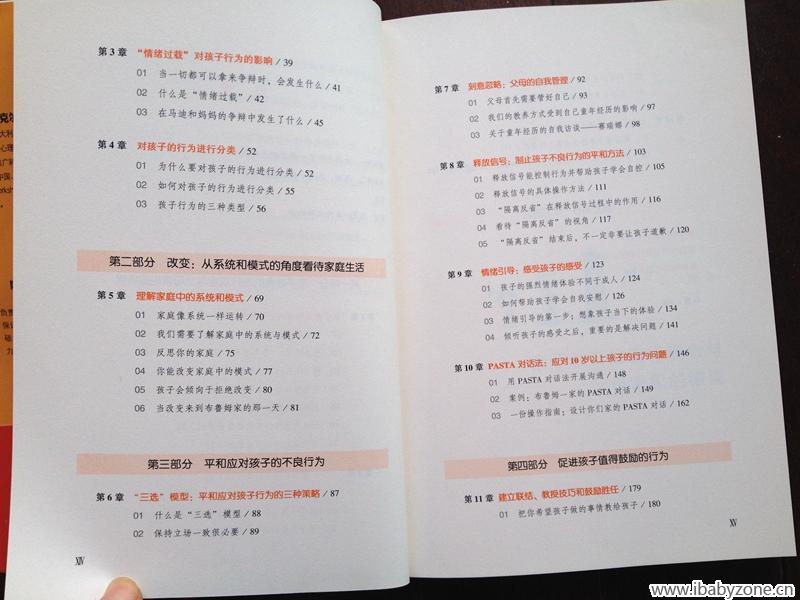 第3章 “情绪过载”对孩子行为的影响 / 39
01 当一切都可以拿来争辩时，会发生什么 / 41
02 什么是“情绪过载” / 42
03 在马迪和妈妈的争辩中发生了什么 / 45
第4章 对孩子的行为进行分类 / 52
01 为什么要对孩子的行为进行分类 / 52
02 如何对孩子的行为进行分类 / 55
03 孩子行为的三种类型 / 56
第二部分 改变：从系统和模式的角度看待家庭生活
第5章 理解家庭中的系统和模式 / 69
01 家庭像系统一样运转 / 70
02 我们需要了解家庭中的系统与模式 / 72
03 反思你的家庭 / 75
04 你能改变家庭中的模式 / 77
05 孩子会倾向于拒绝改变 / 80
06 当改变来到布鲁姆家的那一天 / 81
第三部分 平和应对孩子的不良行为
第6章 “三选”模型：平和应对孩子行为的三种策略 / 87
01 什么是“三选”模型 / 88
02 保持立场一致很必要 / 89
XIV
第7章 刻意忽略：父母的自我管理 / 92
01 父母首先需要管好自己 / 93
02 我们的教养方式受到自己童年经历的影响 / 97
03 关于童年经历的自我访谈——赛瑞娜 / 98
第8章 释放信号：制止孩子不良行为的平和方法 / 103
01 释放信号能控制行为并帮助孩子学会自控 / 105
02 释放信号的具体操作方法 / 111
03 “隔离反省”在释放信号过程中的作用 / 116
04 看待“隔离反省”的视角 / 117
05 “隔离反省”结束后，不一定非要让孩子道歉 / 120
第9章 情绪引导：感受孩子的感受 / 123
01 孩子的强烈情绪体验不同于成人 / 124
02 如何帮助孩子学会自我安慰 / 126
03 情绪引导的第一步：想象孩子当下的体验 / 134
04 倾听孩子的感受之后，重要的是解决问题 / 141
第10章 PASTA对话法：应对10岁以上孩子的行为问题 / 146
01 用PASTA对话法开展沟通 / 148
02 案例：布鲁姆一家的PASTA对话 / 149
03 一份操作指南：设计你们家的PASTA对话 / 162
第四部分 促进孩子值得鼓励的行为
第11章 建立联结、教授技巧和鼓励胜任 / 179
01 把你希望孩子做的事情教给孩子 / 180
XV
www.ibabyzone.cn